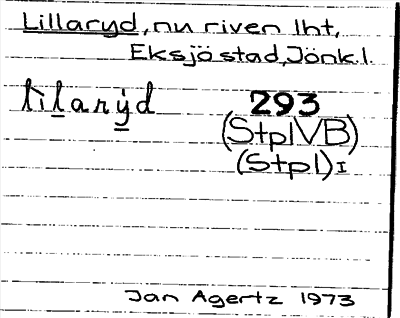 Lillaryd, nu riven lht,
Eksjö stad, Jönk.l.
lilarỳd 293
(StplVB)
(Stpl)I
Jan Agertz 1973